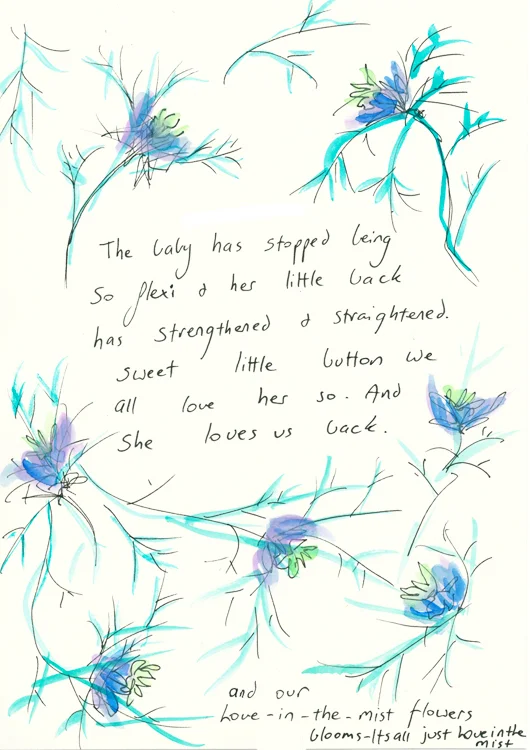 The baby has stopped being
So flexi & her little back
has strengthened & straightened.
sweet little button we
all love her so. And
She loves us back.
and our
Love-in-the-mist flowers
blooms-Its all just Love in the
mist